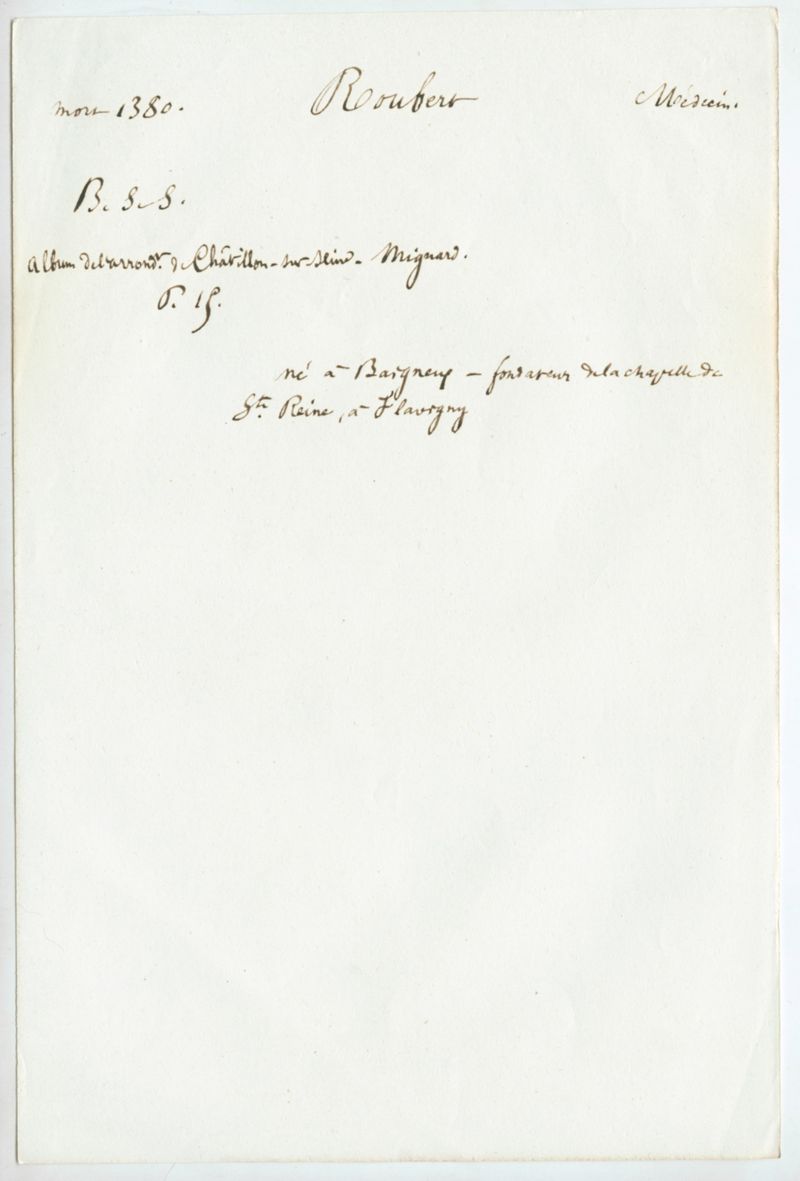 mort 1380. Roubert Médecin.
B. S. S.
Album de l'arrondt. de Châtillon-sur-Seine - Mignard.
P. 15.
né à Baigneux - fondateur de la chapelle de
Ste. Reine, à Flavigny